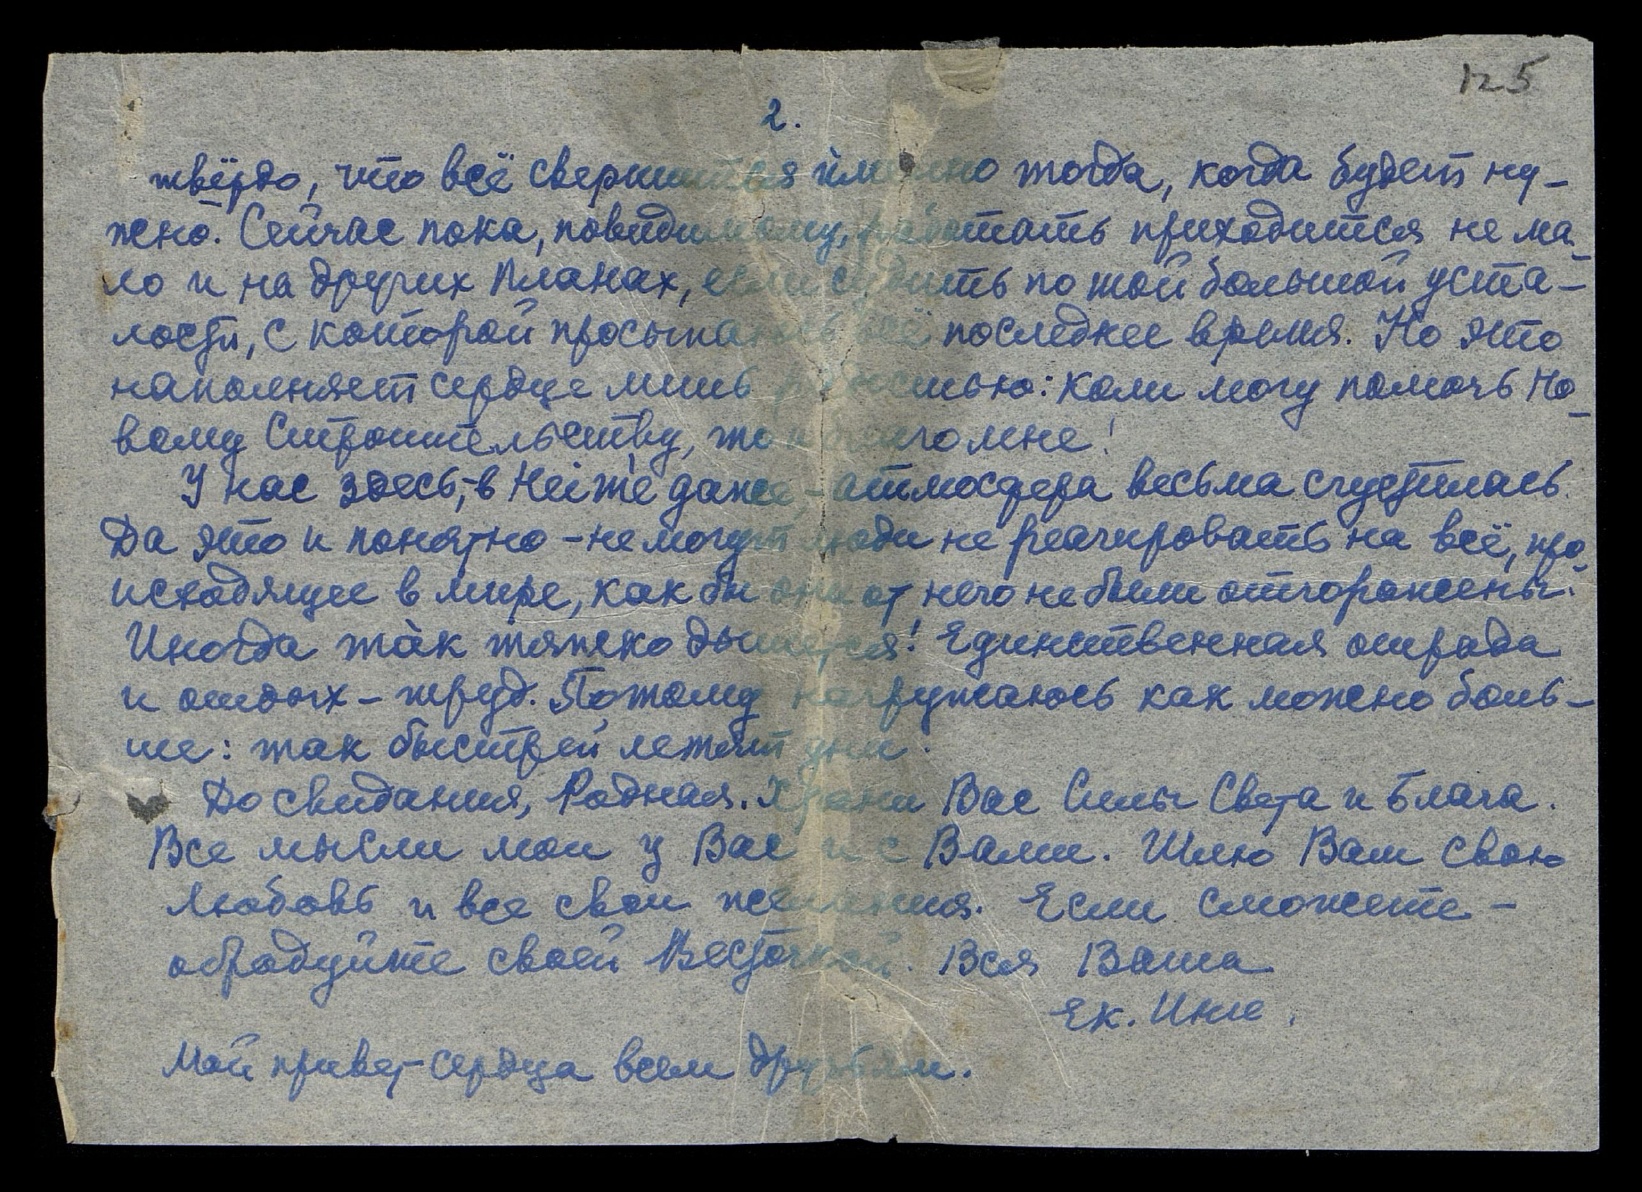 125
2.
твёрдо, что всё свершится именно тогда, когда будет ну-
жно. Сейчас пока, повидимому, работать приходится не ма-
ло и на других планах, если судить по той большой уста-
лости, с которой просыпаюсь всё последнее время. Но это
наполняет сердце лишь радостью: коли могу помочь Но-
вому Строительству, то и благо мне!
У нас здесь, - в Нейже даже, - атмосфера весьма сгустилась.
Да это и понятно - не могут люди не реагировать на всё, про-
исходящее в мире, как бы они от него не были отгорожены.
Иногда так тяжко дышится! Единственная отрада
и отдых - труд. Потому нагружаюсь как можно боль-
ше: так быстрей летят дни.
До свидания, Родная. Храни Вас Силы Света и Блага.
Все мысли мои у Вас и с Вами. Шлю Вам свою
любовь и все свои желания. Если сможете -
обрадуйте своей Весточкой. Вся Ваша
Ек. Инге.
Мой привет сердца всем друзьям.